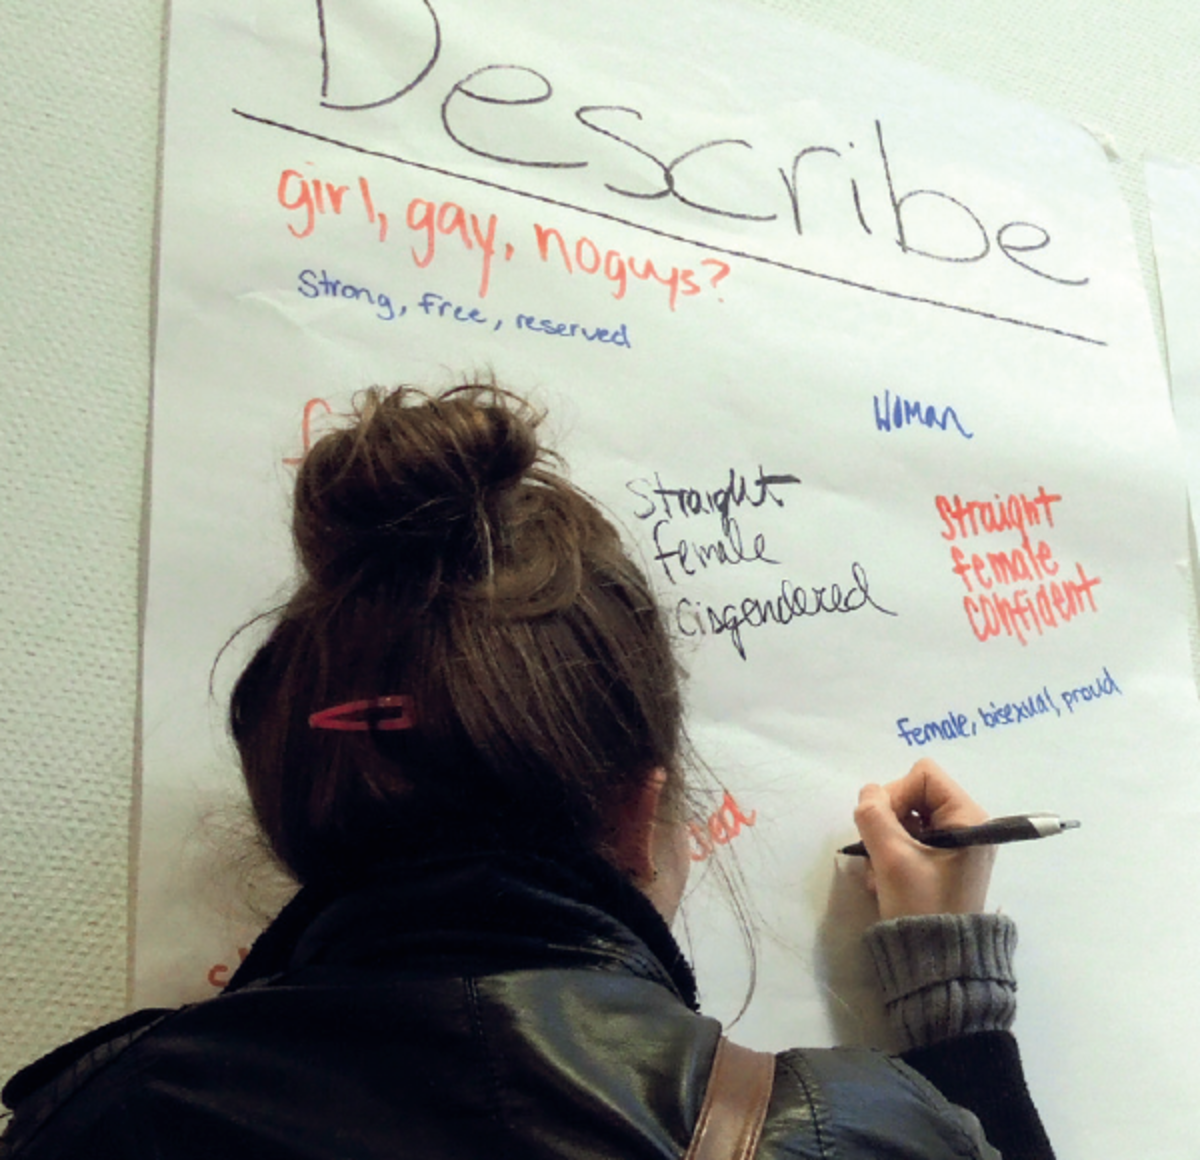 Describe
girl, gay, noguys?
Strong, free, reserved
Woman
Straight
female
Cisgendered
Straight
female
confident
female, bisexual, proud